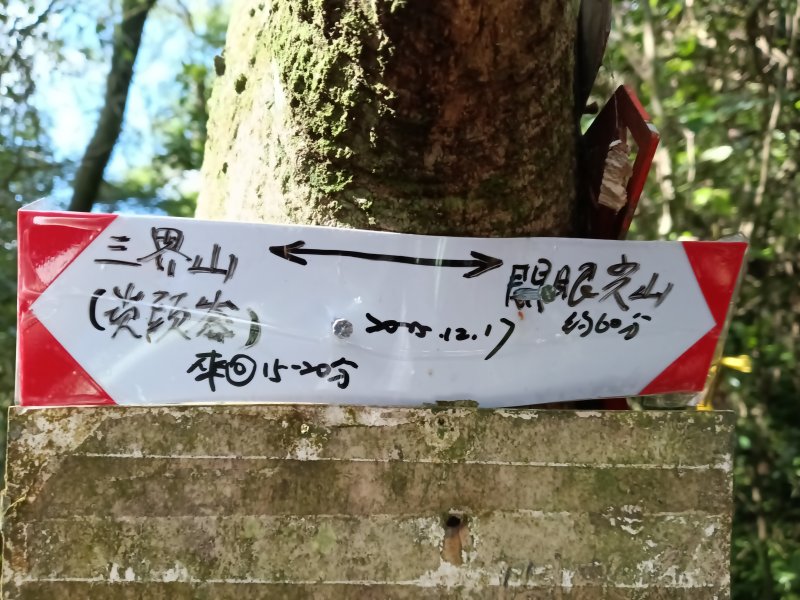 三界山 ←→ 開眼尖山
(頭崙) 2015.12.17 約60分
來回15-20分